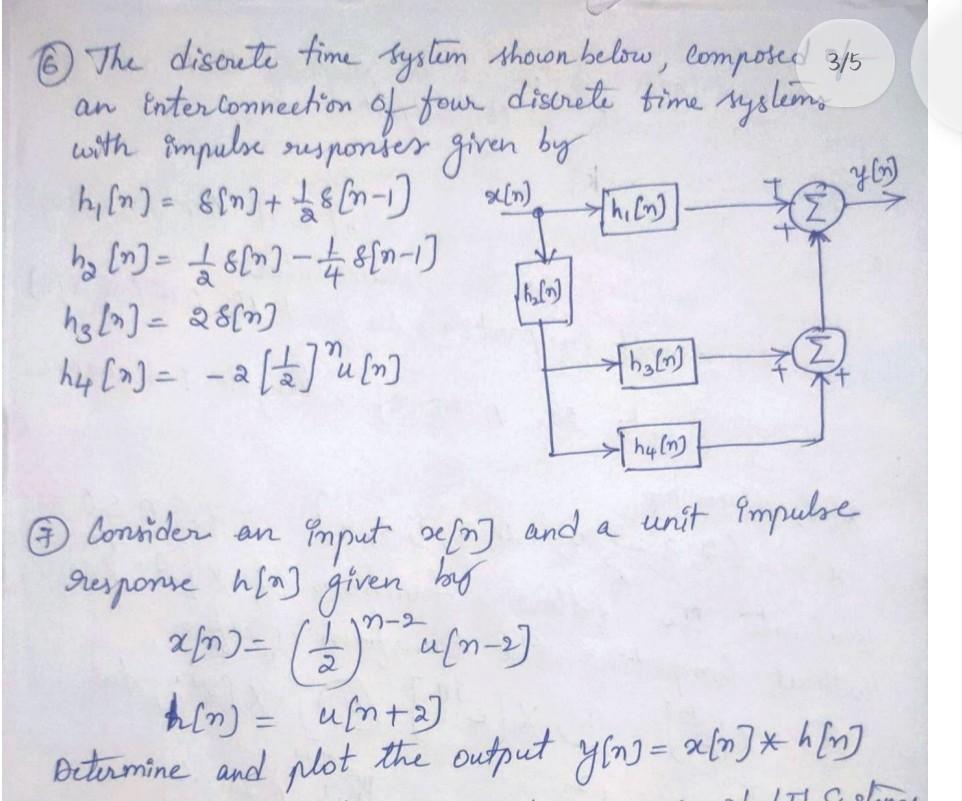 ⑥ The discrete time system shown below, composed
3/5
an Interconnection of four discrete time systems
with impulse responses given by
h₁[n] = δ[n] + 1/2 δ[n-1]
h₂[n] = 1/2 δ[n] - 1/4 δ[n-1]
h₃[n] = 2δ[n]
h₄[n] = -2[1/2]ⁿ u[n]
x[n]
h₁[n]
+
+
Σ
y[n]
h₂[n]
h₃[n]
+
Σ
+
h₄[n]
⑦ Consider an input x[n] and a unit impulse
response h[n] given by
x[n] = (1/2)ⁿ⁻² u[n-2]
h[n] = u[n+2]
Determine and plot the output y[n] = x[n] * h[n]